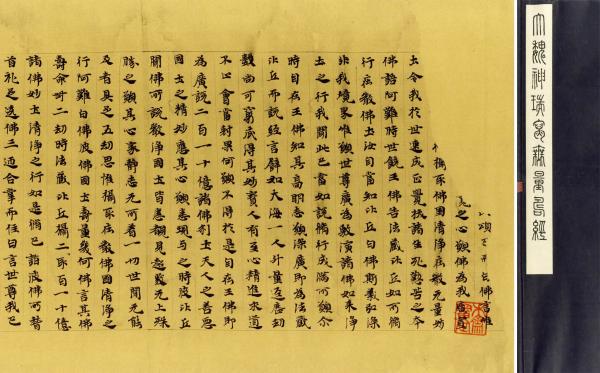 大魏神瑞寫無量壽經
佛言唯
之心願佛為我廣宣
攝取佛國清淨莊嚴无量妙
土令我於世速成正覺拔諸生死懃苦之本
佛語阿難時世饒王佛告法藏比丘如所脩
行莊嚴佛土汝自當知比丘白佛斯義弘深
非我境界唯願世尊廣為敷演諸佛如來淨
土之行我聞此已當如說脩行成滿所願尒
時自在王佛知其高明志願深廣即為法藏
比丘而說經言譬如大海一人升量逕歷劫
數尚可窮底得其妙寶人有至心精進求道
不止會當剋果何願不得於是自在王佛即
為廣說二百一十億諸佛剎土天人之善惡
國土之精妙應其心願悉現與之時彼比丘
聞佛所說嚴淨國土皆悉覩見超發无上殊
勝之願其心寂靜志无所著一切世間无能
及者具足五劫思惟攝取莊嚴佛國清淨之
行阿難白佛彼佛國土壽量幾何佛言其佛
壽命卌二劫時法藏比丘攝取二百一十億
諸佛妙土清淨之行如是脩已詣彼佛所稽
首礼足遶佛三匝合掌而住白言世尊我已